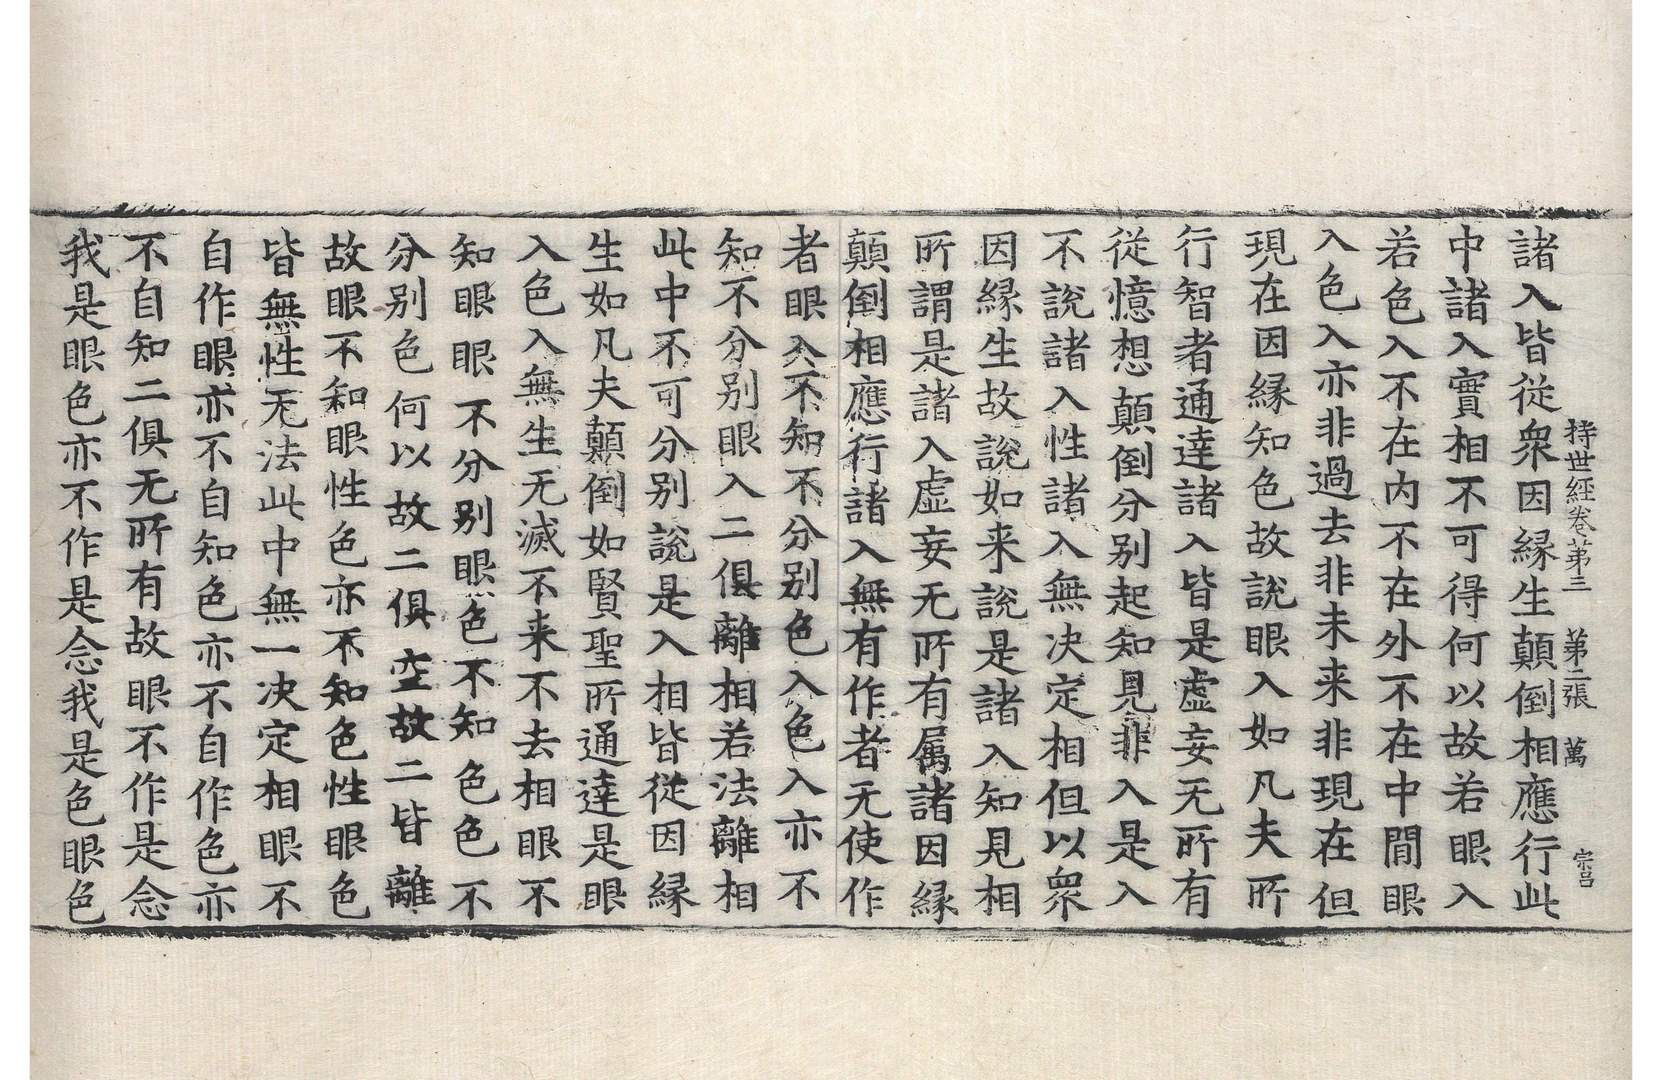 持世經卷第三 第二張 萬 宗呂
諸入皆從衆因縁生顛倒相應行此
中諸入實相不可得何以故若眼入
若色入不在内不在外不在中間眼
入色入亦非過去非未来非現在但
現在因縁知色故說眼入如凡夫所
行智者通達諸入皆是虚妄无所有
從憶想顛倒分别起知見非入是入
不說諸入性諸入無决定相但以衆
因縁生故說如来說是諸入知見相
所謂是諸入虚妄无所有属諸因縁
顛倒相應行諸入無有作者无使作
者眼入不知不分别色入色入亦不
知不分别眼入二俱離相若法離相
此中不可分别說是入相皆從因縁
生如凡夫顛倒如賢聖所通達是眼
入色入無生无滅不来不去相眼不
知眼眼不分别眼色不知色色不
分别色何以故二俱空故二皆離
故眼不知眼性色亦不知色性眼色
皆無性无法此中無一决定相眼不
自作眼亦不自知色亦不自作色亦
不自知二俱无所有故眼不作是念
我是眼色亦不作是念我是色眼色